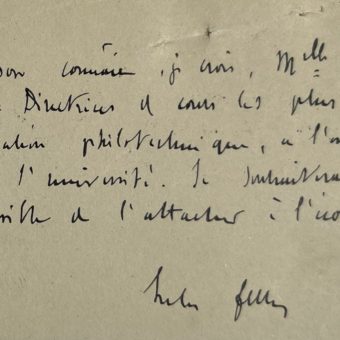 son connaît, je crois, Mlle
Directrices d cours les plus
ation philotechnique, à l'
l'université. Je souhaitera
sible de l'attacher à l'éco
Jules Ferry